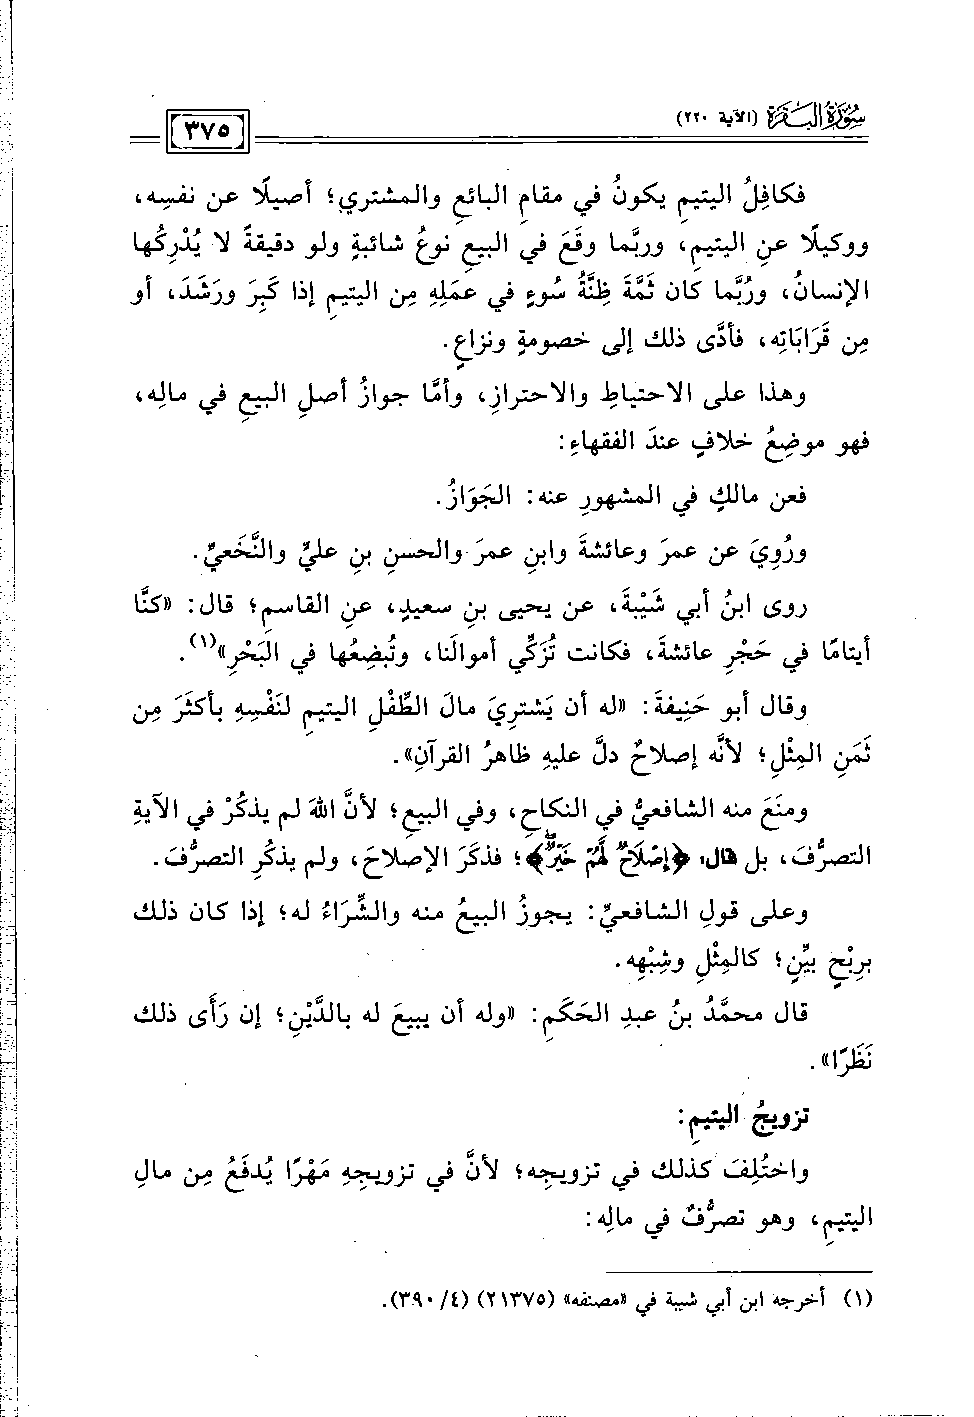 سُورَةُ البَقَرَةِ (الآية ٢٢٠)
٣٧٥
فكافِلُ اليتيمِ يكونُ في مقامِ البائعِ والمشتري؛ أصيلًا عن نفسِه،
ووكيلًا عنِ اليتيمِ، وربَّما وقَعَ في البيعِ نوعُ شائبةٍ ولو دقيقةً لا يُدْرِكُها
الإنسانُ، ورُبَّما كان ثَمَّةَ ظِنَّةُ سُوءٍ في عمَلِهِ مِن اليتيمِ إذا كَبِرَ ورَشَدَ، أو
مِن قَرَابَاتِه، فأدَّى ذلك إلى خصومةٍ ونزاعٍ.
وهذا على الاحتياطِ والاحترازِ، وأمَّا جوازُ أصلِ البيعِ في مالِه،
فهو موضِعُ خلافٍ عندَ الفقهاءِ:
فعن مالكٍ في المشهورِ عنه: الجَوَازُ.
ورُوِيَ عن عمرَ وعائشةَ وابنِ عمرَ والحسنِ بنِ عليٍّ والنَّخَعيِّ.
روى ابنُ أبي شَيْبةَ، عن يحيى بنِ سعيدٍ، عنِ القاسمِ؛ قال: «كنَّا
أيتامًا في حَجْرِ عائشةَ، فكانت تُزَكِّي أموالَنا، وتُبضِعُها في البَحْرِ»(١).
وقال أبو حَنِيفةَ: «له أن يَشترِيَ مالَ الطِّفْلِ اليتيمِ لنَفْسِهِ بأكثَرَ مِن
ثَمَنِ المِثْلِ؛ لأنَّه إصلاحٌ دلَّ عليهِ ظاهرُ القرآنِ».
ومنَعَ منه الشافعيُّ في النكاحِ، وفي البيعِ؛ لأنَّ اللهَ لم يذكُرْ في الآيةِ
التصرُّفَ، بل قال: ﴿إِصْلَاحٌ لَهُمْ خَيْرٌ﴾؛ فذكَرَ الإصلاحَ، ولم يذكُرِ التصرُّفَ.
وعلى قولِ الشافعيِّ: يجوزُ البيعُ منه والشِّرَاءُ له؛ إذا كان ذلك
برِبْحٍ بيِّنٍ؛ كالمِثْلِ وشِبْهِه.
قال محمَّدُ بنُ عبدِ الحَكَمِ: «وله أن يبيعَ له بالدَّيْنِ؛ إن رَأَى ذلك
نَظَرًا».
تزويجُ اليتيمِ:
واختُلِفَ كذلك في تزويجِه؛ لأنَّ في تزويجِهِ مَهْرًا يُدفَعُ مِن مالِ
اليتيمِ، وهو تصرُّفٌ في مالِه:
(١) أخرجه ابن أبي شيبة في «مصنفه» (٢١٣٧٥) (٤/ ٣٩٠).